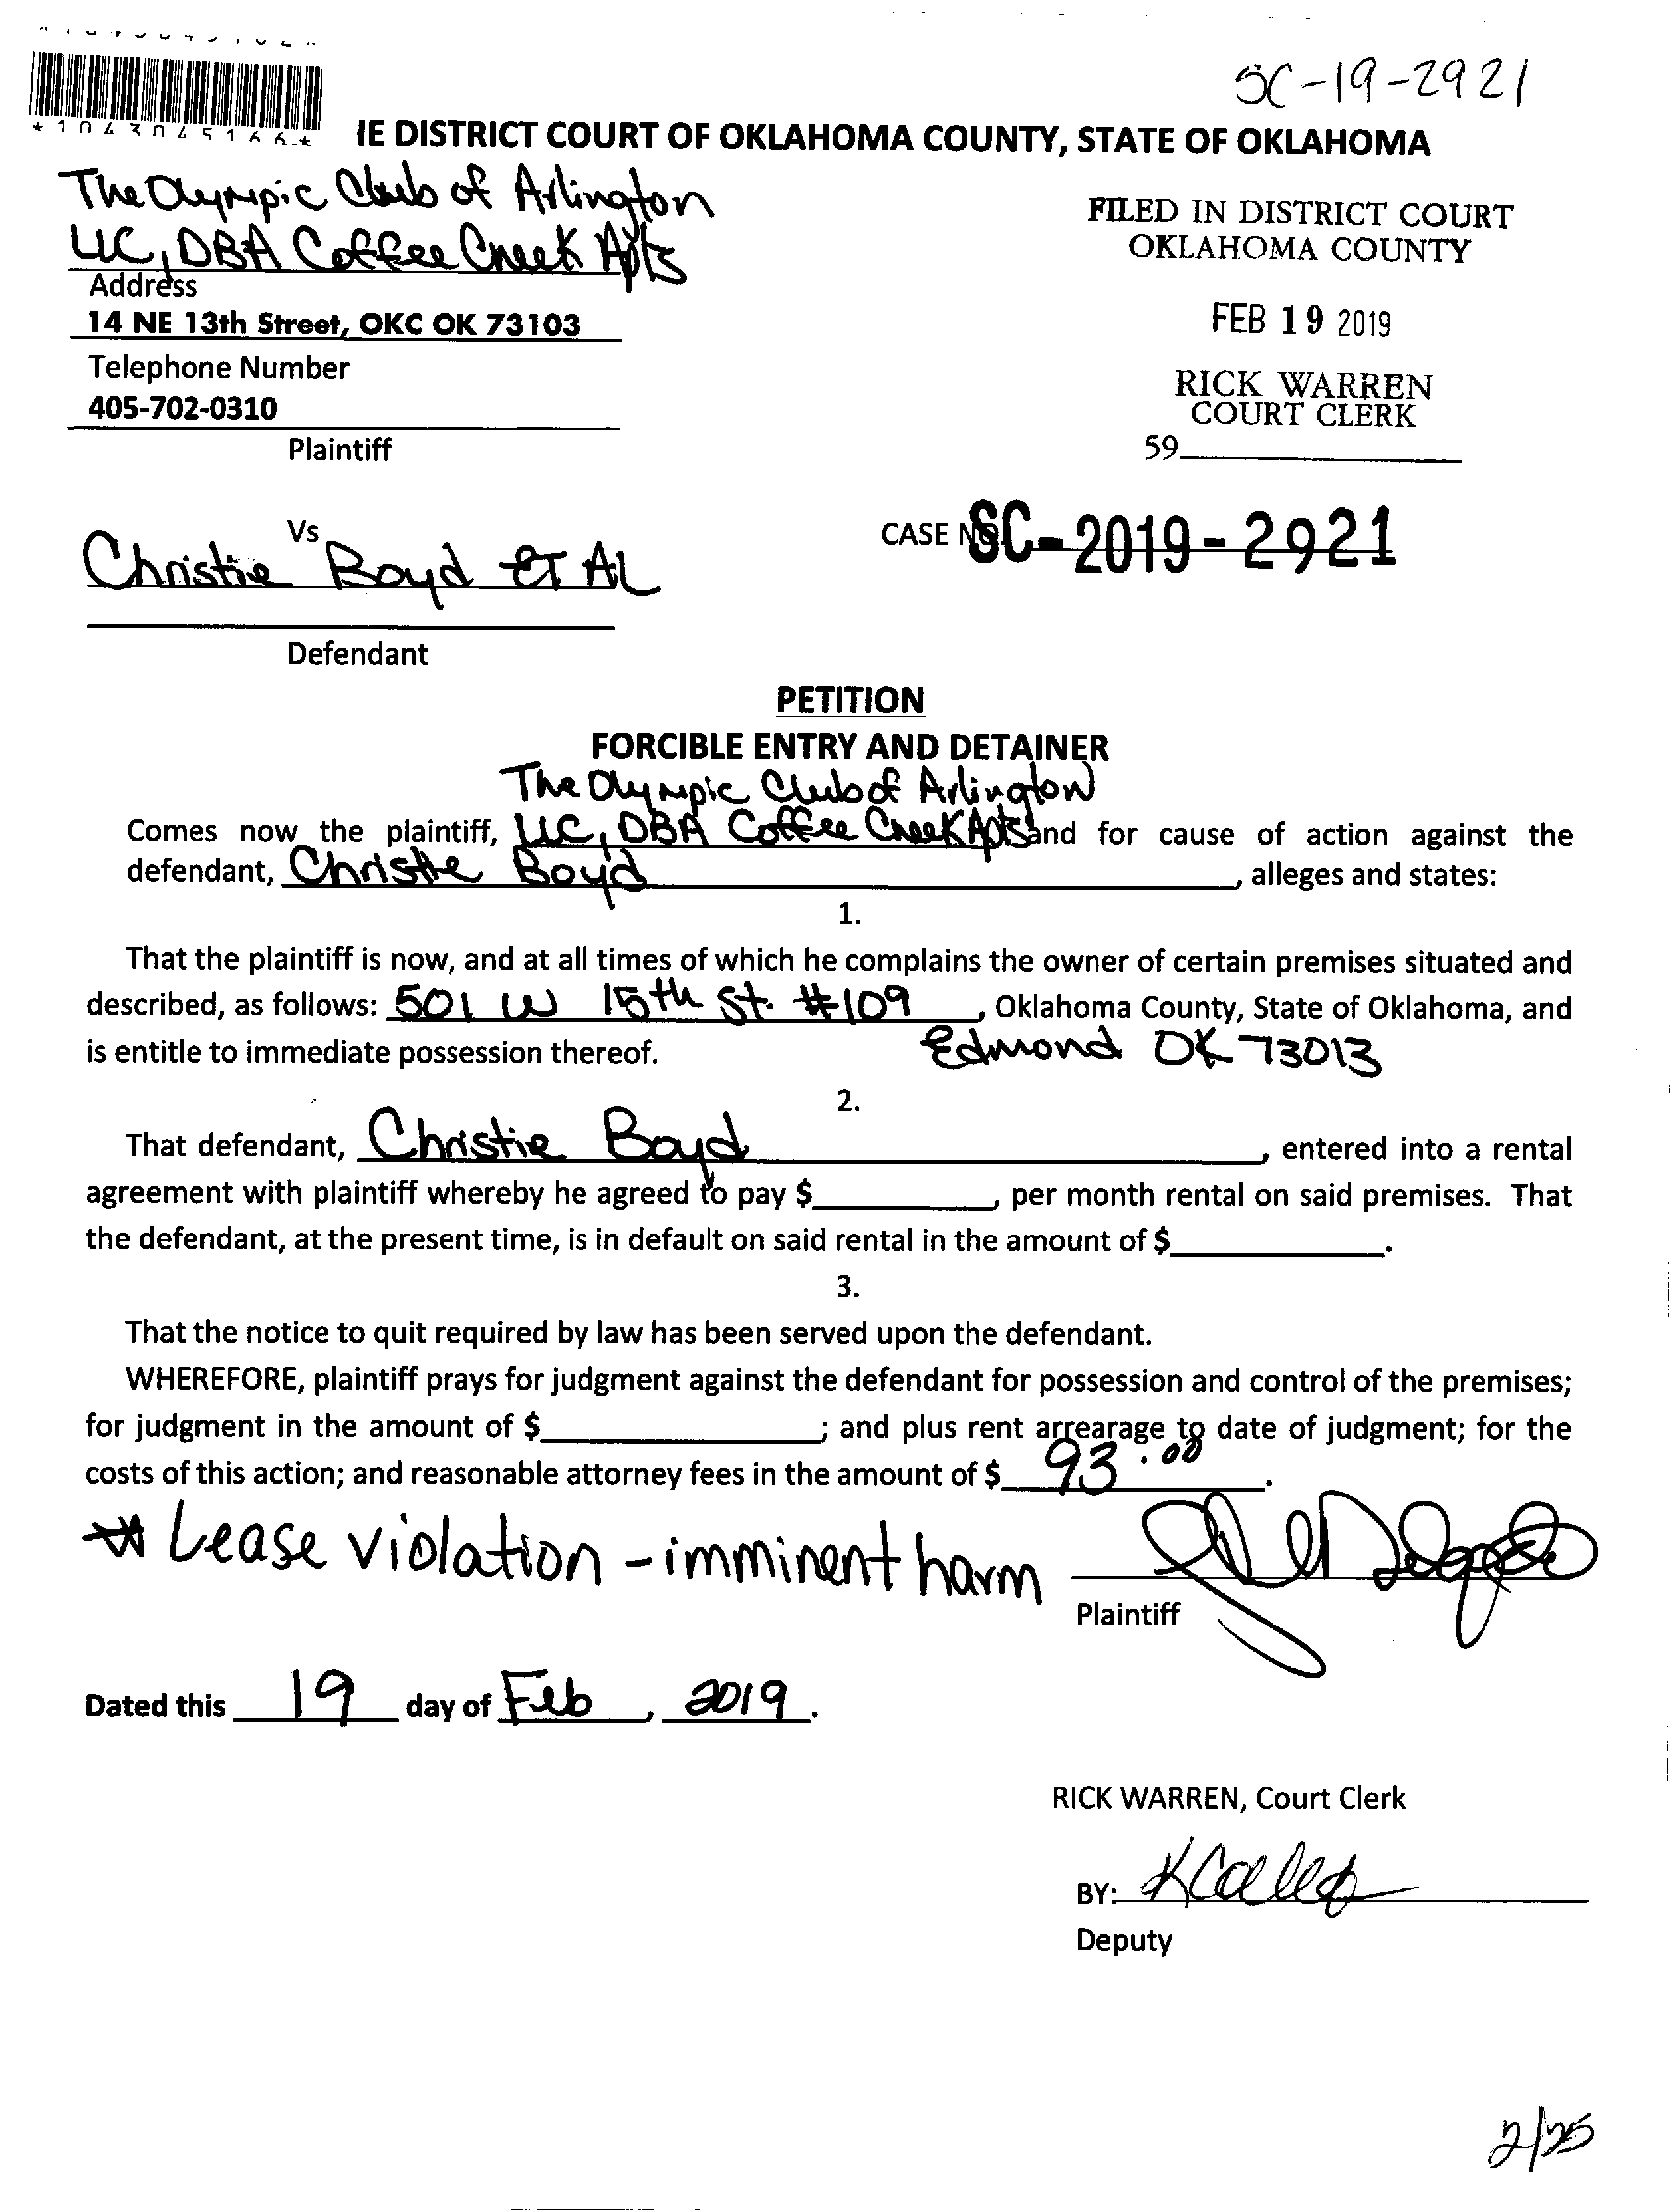 SC-19-2921
*1043045166*
IE DISTRICT COURT OF OKLAHOMA COUNTY, STATE OF OKLAHOMA
The Olympic Club of Arlington
LLC, DBA Coffee Creek Apts
Address
14 NE 13th Street, OKC OK 73103
Telephone Number
405-702-0310
Plaintiff
FILED IN DISTRICT COURT
OKLAHOMA COUNTY
FEB 19 2019
RICK WARREN
COURT CLERK
59
Vs
Christie Boyd ET AL
Defendant
CASE NO. SC-2019-2921
PETITION
FORCIBLE ENTRY AND DETAINER
The Olympic Club of Arlington
Comes now the plaintiff, LLC, DBA Coffee Creek Apts and for cause of action against the
defendant, Christie Boyd, alleges and states:
1.
That the plaintiff is now, and at all times of which he complains the owner of certain premises situated and
described, as follows: 501 W 15th St. #109, Oklahoma County, State of Oklahoma, and
is entitle to immediate possession thereof. Edmond OK 73013
2.
That defendant, Christie Boyd, entered into a rental
agreement with plaintiff whereby he agreed to pay $, per month rental on said premises. That
the defendant, at the present time, is in default on said rental in the amount of $.
3.
That the notice to quit required by law has been served upon the defendant.
WHEREFORE, plaintiff prays for judgment against the defendant for possession and control of the premises;
for judgment in the amount of $; and plus rent arrearage to date of judgment; for the
costs of this action; and reasonable attorney fees in the amount of $ 93.00.
Lease violation - imminent harm
Plaintiff
Dated this 19 day of Feb, 2019.
RICK WARREN, Court Clerk
BY:
Deputy
2/25